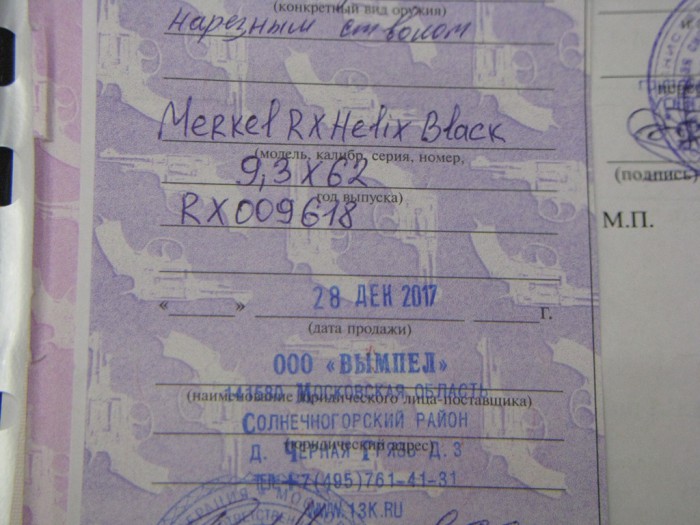 (конкретный вид оружия)
нарезным стволом
Merkel RX Helix Black
(модель, калибр, серия, номер,
9,3 х 62
год выпуска)
RX009618
28 ДЕК 2017
« » г.
(дата продажи)
ООО «ВЫМПЕЛ»
141580 МОСКОВСКАЯ ОБЛАСТЬ
(наименование юридического лица-поставщика)
СОЛНЕЧНОГОРСКИЙ РАЙОН
(юридический адрес)
Д. ЧЕРНАЯ ГРЯЗЬ Д.3
ТЕЛ. +7(495)761-41-31
WWW.13K.RU
(подпись)
М.П.